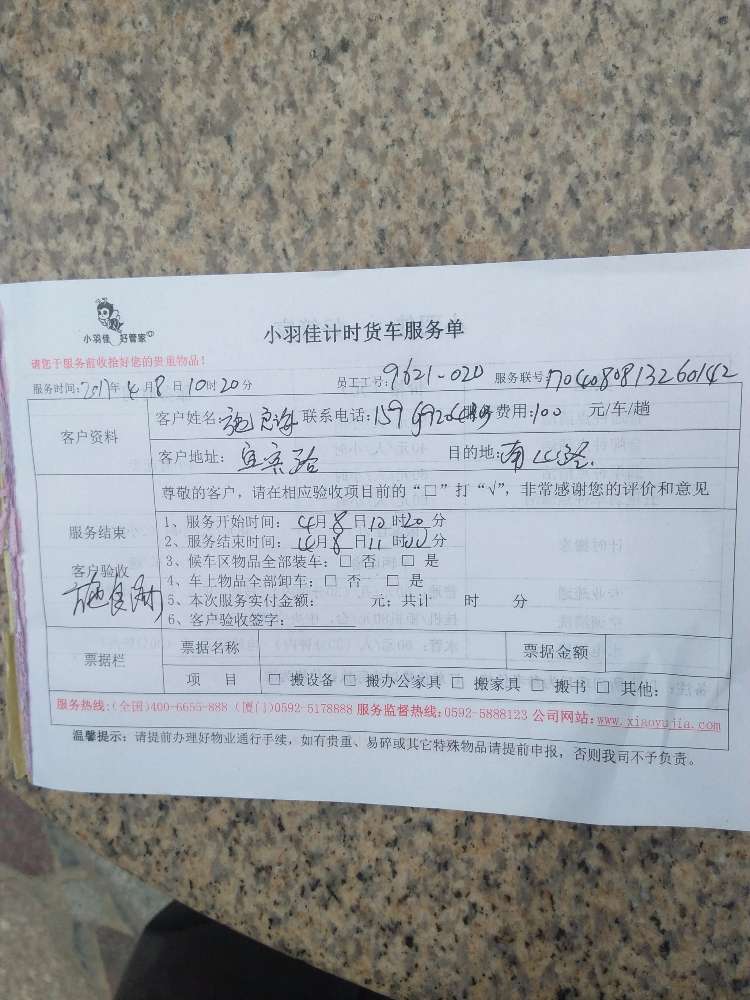 小羽佳 好管家
小羽佳计时货车服务单
请您于服务前收拾好您的贵重物品！
服务时间：2017年4月8日10时20分 员工工号：9621-020 服务联号：17040808132601​42
客户资料 客户姓名： 联系电话： 费用：100 元/车/趟
客户地址： 目的地：
尊敬的客户，请在相应验收项目前的“□”打“√”，非常感谢您的评价和意见
服务结束 客户验收
1、服务开始时间：4月8日10时20分
2、服务结束时间：4月8日11时00分
3、候车区物品全部装车：□ 否 □ 是
4、车上物品全部卸车：□ 否 □ 是
5、本次服务实付金额： 元；共计 时 分
6、客户验收签字：
票据栏 票据名称 票据金额
项 目 □ 搬设备 □ 搬办公家具 □ 搬家具 □ 搬书 □ 其他：
服务热线：(全国)400-6655-888 (厦门)0592-5178888 服务监督热线：0592-5888123 公司网站：www.xiaoyujia.com
温馨提示：请提前办理好物业通行手续，如有贵重、易碎或其它特殊物品请提前申报，否则我司不予负责。